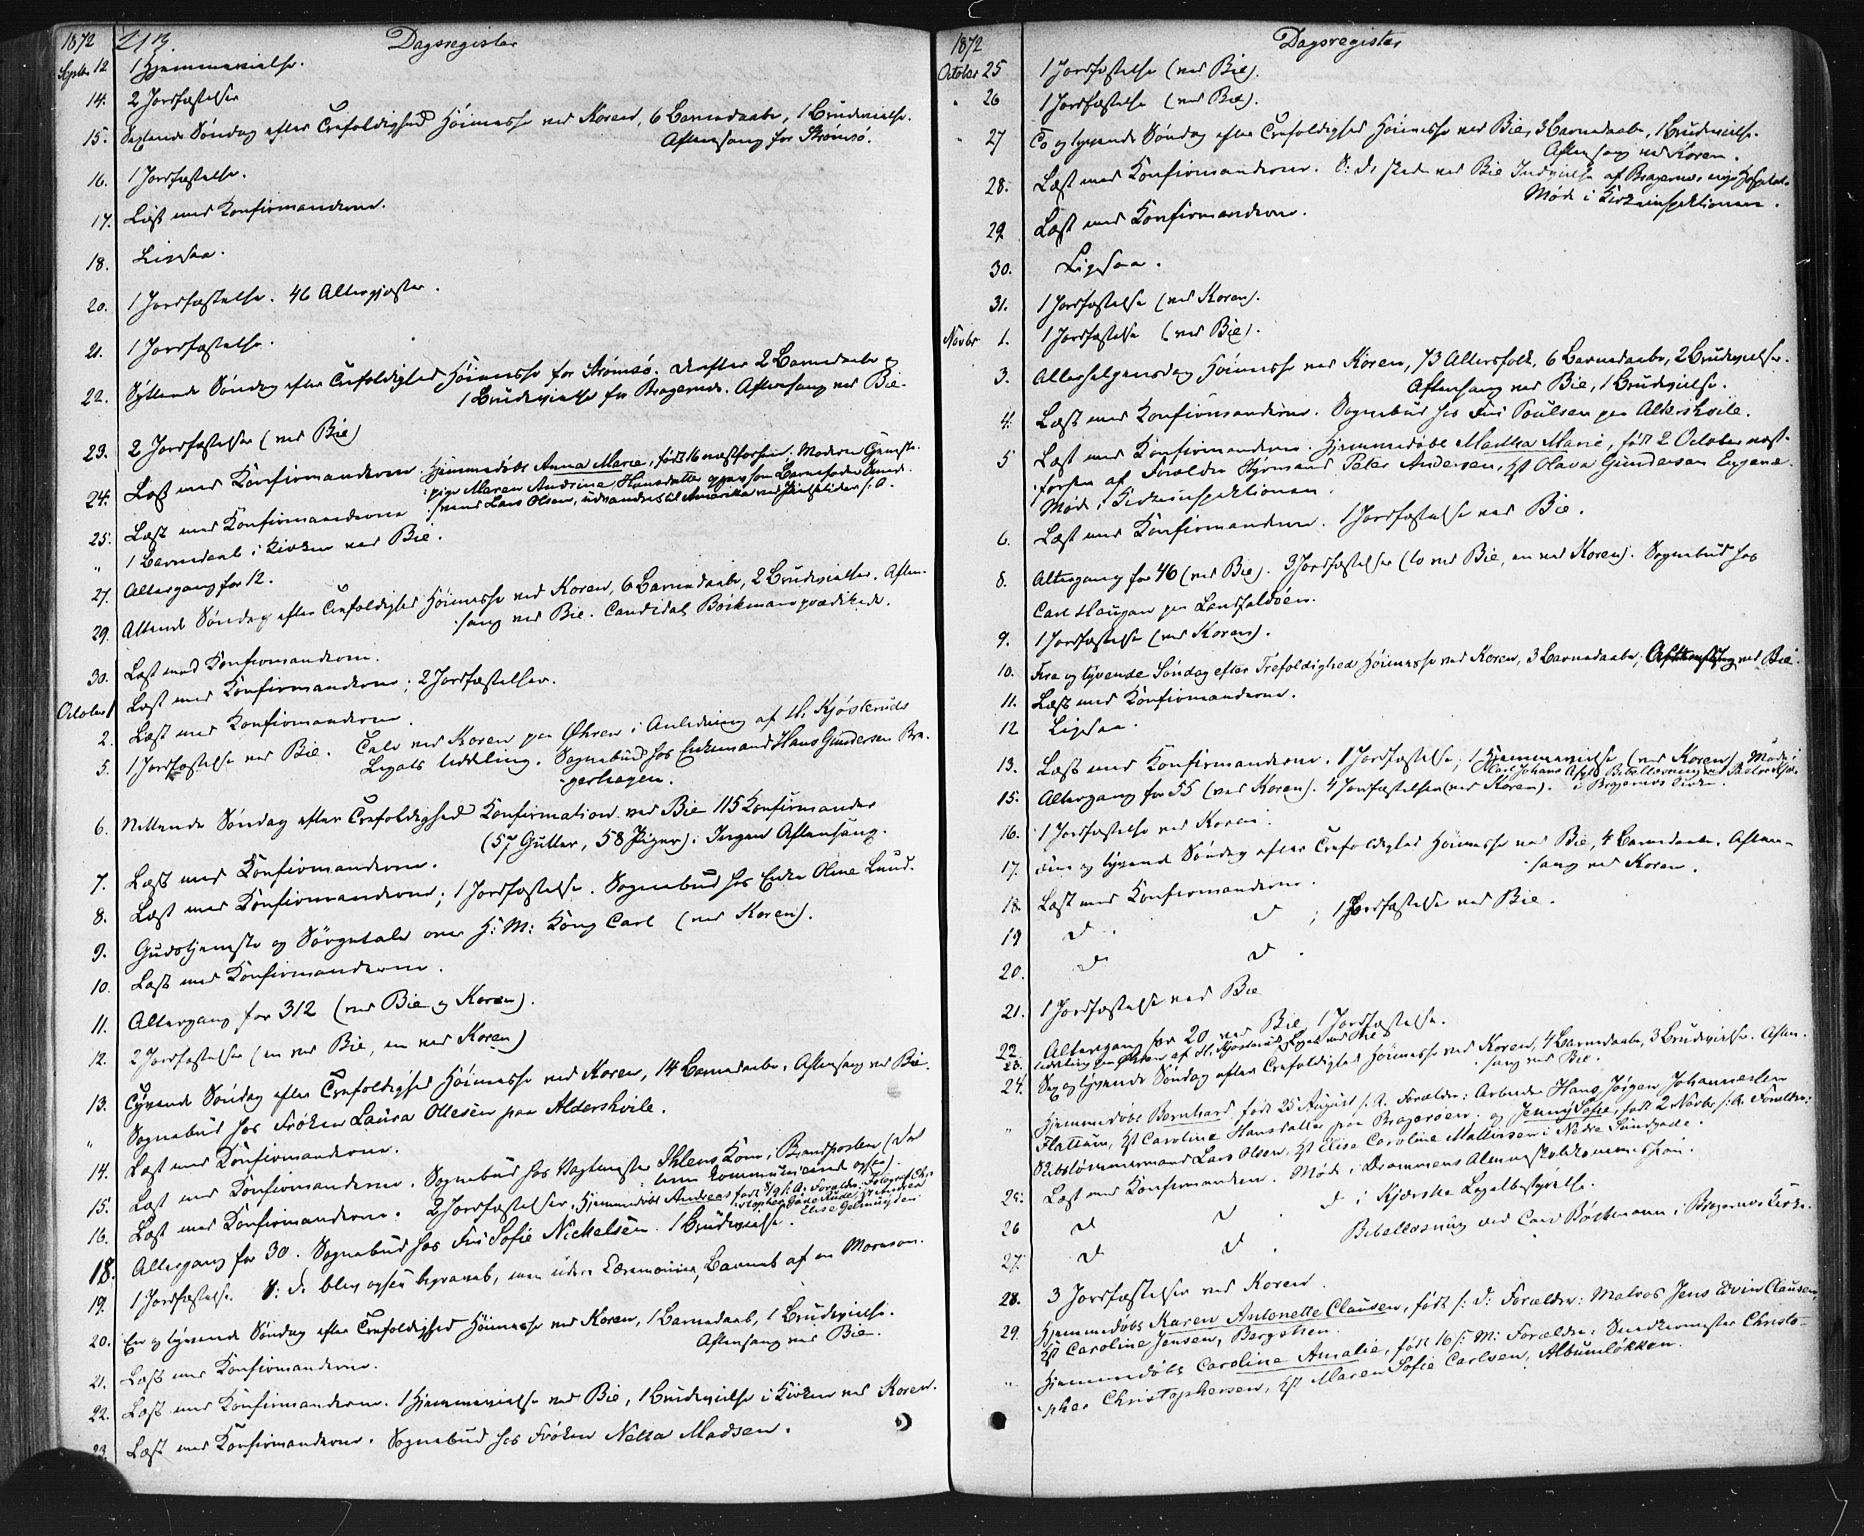 1872 213. Dagsregister
Septbr 12 1 Hjemmevielse.
14. 2 Jordfæstelser
15. Sextende Søndag efter Trefoldighed Höimesse ved Koren, 6 Barnedaabe, 1 Brudevielse.
Aftensang for Strömsö.
16. 1 Jordfæstelse.
17. Læst med Konfirmanderne.
18. Ligesaa.
20. 1 Jordfæstelse. 46 Altergjæster.
21. 1 Jordfæstelse.
22. Syttende Søndag efter Trefoldighed Höimesse for Strömsö. derefter 2 Barnedaabe og
1 Brudevielse for Bragernes. Aftensang ved Bie.
23. 2 Jordfæstelser (ved Bie)
24. Læst med Konfirmanderne. Hjemmedöbt Anna Marie, født 16 næstforhen. Moderen Tjeneste-
pige Maren Andrine Hansdatter opgav som Barnefader
Lars Olsen, udvandret til Amerika ved
25. Læst med Konfirmanderne
" 1 Barnedaab i Kirken ved Bie.
27. Altergang for 12.
29. Attende Søndag efter Trefoldighed Höimesse ved Koren, 6 Barnedaabe, 2 Brudevielser. Aften-
sang ved Bie. Candidat Böckman prædikede.
30. Læst med Konfirmanderne.
October 1 Læst med Konfirmanderne; 2 Jordfæstelser.
2. Læst med Konfirmanderne.
5. 1 Jordfæstelse ved Bie. Tale ved Koren paa Øhren i Anledning af H. Kjösteruds
Legats Uddeling. Sognebud hos Enkemand Hans Gundersen Bra-
gerhagen.
6. Nittende Søndag efter Trefoldighed Konfirmation ved Bie 115 Konfirmander
(57 Gutter, 58 Piger). Ingen Aftensang.
7. Læst med Konfirmanderne.
8. Læst med Konfirmanderne; 1 Jordfæstelse. Sognebud hos Enke Oline Lund.
9. Gudstjeneste og Sörgetale over H: M: Kong Carl (ved Koren).
10. Læst med Konfirmanderne.
11. Altergang for 312 (ved Bie og Koren).
12. 2 Jordfæstelser (en ved Bie, en ved Koren)
13. Tyvende Søndag efter Trefoldighed Höimesse ved Koren, 14 Barnedaabe. Aftensang ved Bie.
" Sognebud hos Fröken Laura Ottesen paa Aldershvile.
14. Læst med Konfirmanderne.
15. Læst med Konfirmanderne. Sognebud hos Vagtmester Ihlens Kone, Brandposten (
han kommunicerede ogsaa).
16. Læst med Konfirmanderne. 2 Jordfæstelser. Hjemmedöbt Andreas født 8/9 s: A: Forældre: Fotograf
18. Altergang for 30. Sognebud hos Fru Sofie Nickelsen. 1 Brudevielse.
19. 1 Jordfæstelse. S: D. blev ogsaa begravet, men uden Ceremonier, Barnet af en Mormon.
20. En og tyvende Søndag efter Trefoldighed Höimesse ved Koren, 1 Barnedaab, 1 Brudevielse.
Aftensang ved Bie.
21. Læst med Konfirmanderne.
22. Læst med Konfirmanderne. 1 Hjemmevielse ved Bie, 1 Brudevielse i Kirken ved Koren.
23. Læst med Konfirmanderne. Sognebud hos Fröken Netta Madsen.
1872 Dagsregister
October 25 1 Jordfæstelse (ved Bie).
" 26 1 Jordfæstelse (ved Bie).
" 27 To og tyvende Søndag efter Trefoldighed Höimesse ved Bie, 3 Barnedaabe, 1 Brudevielse.
Aftensang ved Koren.
28. Læst med Konfirmanderne. S: D: skede ved Bie Indvielse af Bragernes nye Hospital.
Møde i Kirkeinspektionen.
29. Læst med Konfirmanderne.
30. Ligesaa.
31. 1 Jordfæstelse (ved Koren).
Novbr 1. 1 Jordfæstelse (ved Bie).
3. Allehelgensdag Höimesse ved Koren, 73 Altersfolk, 6 Barnedaabe, 2 Brudevielser.
Aftensang ved Bie, 1 Brudevielse.
4. Læst med Konfirmanderne. Sognebud hos Fru Poulsen paa Aldershvile.
5 Læst med Konfirmanderne. Hjemmedöbt Martha Marie, født 2 October næst-
forhen af Forældre Styrmand Peter Andersen, Hst Olava Gundersen Engene.
Møde i Kirkeinspektionen.
6. Læst med Konfirmanderne. 1 Jordfæstelse ved Bie.
8. Altergang for 46 (ved Bie). 3 Jordfæstelser (to ved Bie, en ved Koren). Sognebud hos
Carl Haugan paa Landfaldöen.
9. 1 Jordfæstelse (ved Koren).
10. Fire og tyvende Søndag efter Trefoldighed Höimesse ved Koren, 3 Barnedaabe, Aftensang ved Bie.
11. Læst med Konfirmanderne.
12 Ligesaa.
13. Læst med Konfirmanderne. 1 Jordfæstelse, 1 Hjemmevielse (ved Koren) Møde i
Carl Johans Asyl. Bibellæsning
15. Altergang for 55 (ved Koren). 4 Jordfæstelser (ved Koren). i Bragernes Kirke.
16. 1 Jordfæstelse ved Koren.
17. Fem og tyvende Søndag efter Trefoldighed Höimesse ved Bie, 4 Barnedaabe. Aften-
sang ved Koren.
18. Læst med Konfirmanderne.
19 d d ; 1 Jordfæstelse ved Bie.
20. d d .
21. 1 Jordfæstelse ved Bie
22. Altergang for 20 ved Bie, 1 Jordfæstelse.
23. Uddeling paa Øhren af H. Kjösteruds Legat ved Bie
24. Sex og tyvende Søndag efter Trefoldighed Höimesse ved Koren, 4 Barnedaabe, 3 Brudevielser. Aften-
sang ved Bie.
" Hjemmedöbt Bernhard født 25 August s. A. Forældre: Arbeider Hans Jörgen Johannessen
Flattum, Hst Caroline Hansdatter paa Bragerøen. og Jenny Sofie, født 2 Novbr s. A. Forældre:
Skibstömmermand Lars Olsen, Hst Elise Caroline Mattissen i Nedre Sundgade.
25. Læst med Konfirmanderne. Møde i Drammens Almueskolekommission.
26 d d . d i Kjærske Legatbestyrelse.
27. d d . Bibellæsning ved Cand Böckmann i Bragernes Kirke.
28. 3 Jordfæstelser ved Koren.
29. Hjemmedöbt Karen Antonette Clausen, født s: D: Forældre: Matros Jens Edvin Clausen,
Hst Caroline Jensen, Bergstien.
" Hjemmedöbt Caroline Amalie, født 16 s: M: Forældre: Snedkermester Christo-
pher Christophersen, Hst Maren Sofie Carlsen, Albumlökken.